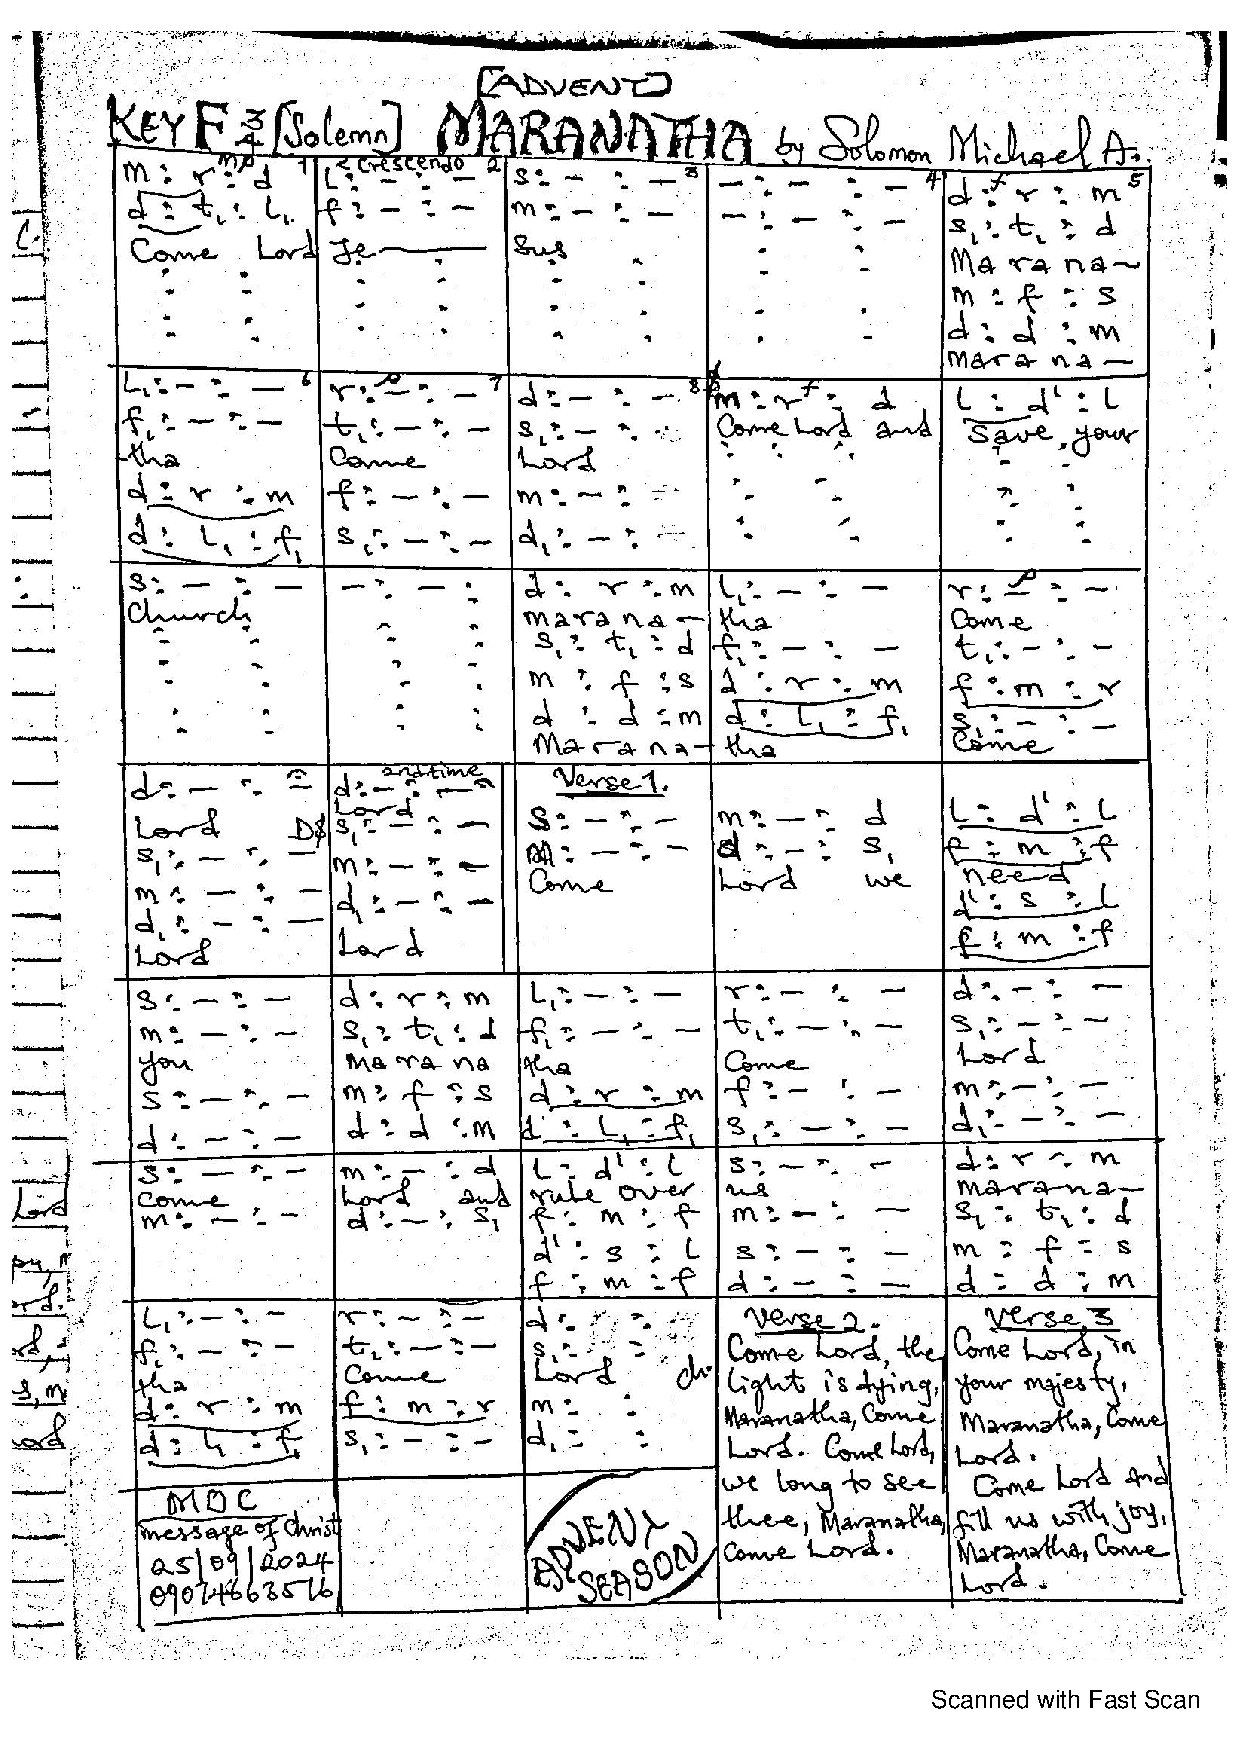 [ADVENT]
KEY F 3/4 [Solemn] MARANATHA by Solomon Michael A.
m : r : d mp 1
d : t₁ : l₁
Come Lord
< Crescendo 2
l : – : –
f : – : –
Je
s : – : – 3
m : – : –
Sus
– : – : – 4
– : – : –
d : r : m f 5
s₁ : t₁ : d
Ma ra na –
m : f : s
d : d : m
mara na –
l₁ : – : – 6
f₁ : – : –
tha
d : r : m
d : l₁ : f₁
r : – : – p 7
t₁ : – : –
Come
f : – : –
s₁ : – : –
d : – : – 8
s₁ : – : –
Lord
m : – : –
d₁ : – : –
m : r : d f
Come Lord and
l : d' : l
Save your
s : – : –
Church
– : – : :
d : r : m
mara na –
s₁ : t₁ : d
m : f : s
d : d : m
Mara na –
l₁ : – : –
tha
f₁ : – : –
d : r : m
d : l₁ : f₁
tha
r : – : – p
Come
t₁ : – : –
f : m : r
s₁ : – : –
Come
d : – : –
Lord DS
s₁ : – : –
m : – : –
d₁ : – : –
Lord
2nd time
d : – : –
Lord
s₁ : – : –
m : – : –
d₁ : – : –
Lord
Verse 1.
s : – : –
m : – : –
Come
m : – : d
d : – : s₁
Lord we
l : d' : l
f : m : f
need
d' : s : l
f : m : f
s : – : –
m : – : –
you
s : – : –
d : – : –
d : r : m
s₁ : t₁ : d
Ma ra na
m : f : s
d : d : m
l₁ : – : –
f₁ : – : –
tha
d : r : m
d : l₁ : f₁
r : – : –
t₁ : – : –
Come
f : – : –
s₁ : – : –
d : – : –
s₁ : – : –
Lord
m : – : –
d₁ : – : –
s : – : –
Come
m : – : –
m : – : d
Lord and
d : – : s₁
l : d' : l
rule over
f : m : f
d' : s : l
f : m : f
s : – : –
us
m : – : –
s : – : –
d : – : –
d : r : m
marana –
s₁ : t₁ : d
m : f : s
d : d : m
l₁ : – : –
f₁ : – : –
tha
d : r : m
d : l₁ : f₁
r : – : –
t₁ : – : –
Come
f : m : r
s₁ : – : –
d : :
s₁ : :
Lord ch.
m : :
d₁ : :
Verse 2.
Come Lord, the
light is dying,
Maranatha, Come
Lord. Come Lord,
we long to see
thee, Maranatha,
Come Lord.
Verse 3
Come Lord, in
your majesty,
Maranatha, Come
Lord.
Come Lord and
fill us with joy,
Maranatha, Come
Lord.
MOC
message of Christ
25/09/2024
ADVENT
SEASON
Lord
Scanned with Fast Scan